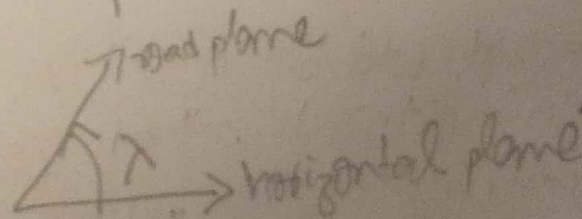 road plane
λ
horizontal plane